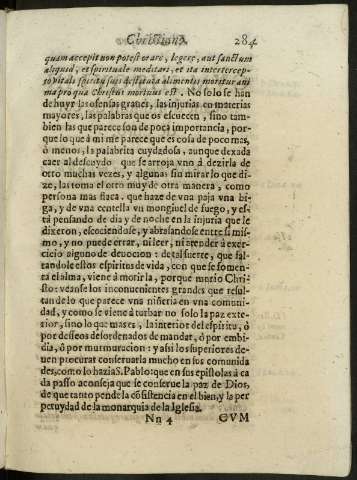 Christiana. 284
quam accepit non potest orare, legere, aut sanctum
aliquid, et spirituale meditari, et ita intercep-
to vitali spiritu suis destituta alimentis moritur ani
ma pro qua Christus mortuus est. No solo se han
de huyr las ofensas graues, las injurias en materias
mayores, las palabras que os escuecen, sino tam
bien las que parece son de poca importancia, por-
que lo que à mi me parece que es cosa de poco mas,
ò menos, la palabrita cuydadosa, aunque dexada
caer al descuydo que se arroja vno à dezirla de
otro muchas vezes, y algunas sin mirar lo que di
ze, las toma el otro muy de otra manera, como
persona mas flaca. que haze de vna paja vna bi
ga, y de vna centella vn mongiuel de fuego, y es
tà pensando de dia y de noche en la injuria que le
dixeron, escociendose, y abrasandose entre si mis-
mo, y no puede orar, ni leer, ni atender à exer-
cicio alguno de deuocion: de tal suerte, que fal-
tandole estos espiritus de vida, con que se fomen-
ta el alma, viene à morir la, porque murio Chri-
sto: veanse los inconuenientes grandes que resul-
tan de lo que parece vna niñeria en vna comuni-
dad, y como se viene à turbar no solo la paz exte-
rior, sino lo que mas es, la interior del espiritu, ò
por desseos desordenados de mandar, ò por embi-
dia, ò por murmuracion: y assi los superiores de-
uen procurar conseruarla mucho en los comunida
des, como lo hazia S. Pablo: que en sus epistolas à ca
da passo aconseja que se conserue la paz de Dios,
de que tanto pende la cõsistencia en el bien, y la per
petuydad de la monarquia de la Iglesia.
Nn 4 CVM